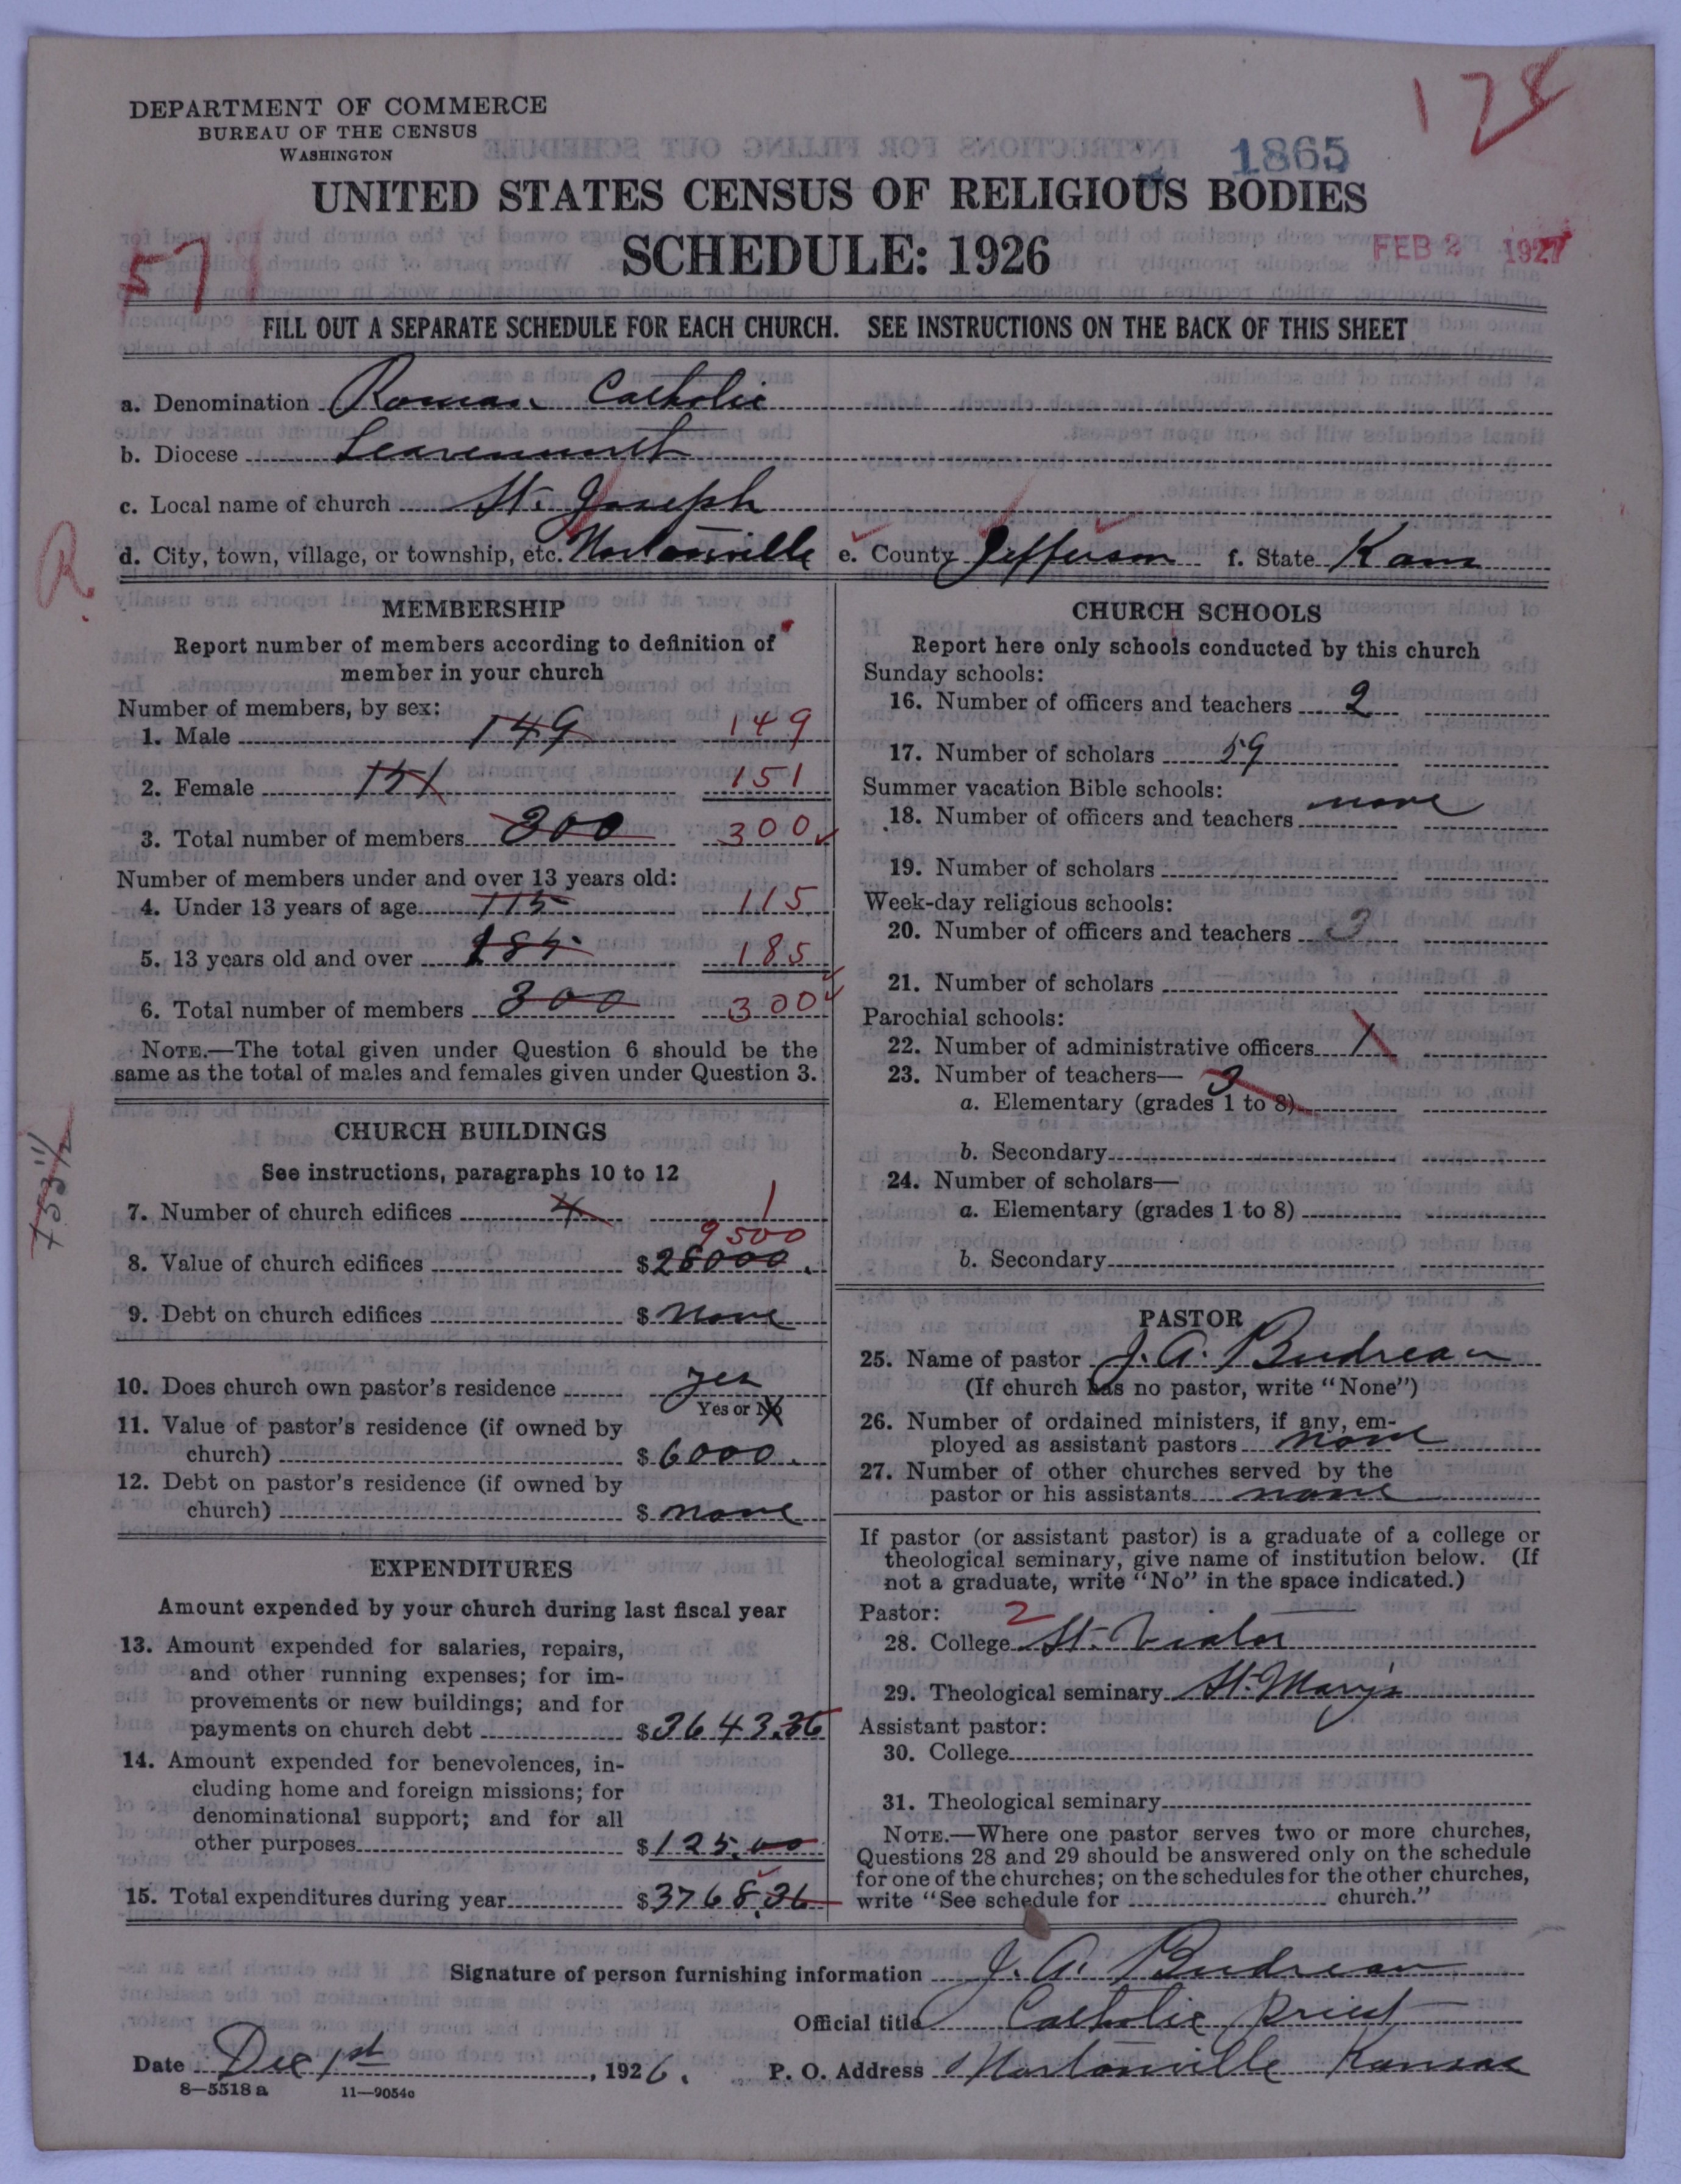 128
DEPARTMENT OF COMMERCE
BUREAU OF THE CENSUS
WASHINGTON
1865
UNITED STATES CENSUS OF RELIGIOUS BODIES
SCHEDULE: 1926
FEB 2 1927
57
FILL OUT A SEPARATE SCHEDULE FOR EACH CHURCH. SEE INSTRUCTIONS ON THE BACK OF THIS SHEET
a. Denomination Roman Catholic
b. Diocese Leavenworth
c. Local name of church St. Joseph
d. City, town, village, or township, etc. Nortonville e. County Jefferson f. State Kans
R.
MEMBERSHIP
Report number of members according to definition of
member in your church
Number of members, by sex:
1. Male 149 149
2. Female 151 151
3. Total number of members 300 300
Number of members under and over 13 years old:
4. Under 13 years of age 115 115
5. 13 years old and over 185 185
6. Total number of members 300 300
NOTE.—The total given under Question 6 should be the
same as the total of males and females given under Question 3.
CHURCH BUILDINGS
See instructions, paragraphs 10 to 12
7. Number of church edifices 4 1
9500
8. Value of church edifices $ 28000.
9. Debt on church edifices $ none
10. Does church own pastor's residence yes
Yes or No
11. Value of pastor's residence (if owned by
church) $ 6000.
12. Debt on pastor's residence (if owned by
church) $ none
EXPENDITURES
Amount expended by your church during last fiscal year
13. Amount expended for salaries, repairs,
and other running expenses; for im-
provements or new buildings; and for
payments on church debt $ 3643.36
14. Amount expended for benevolences, in-
cluding home and foreign missions; for
denominational support; and for all
other purposes $ 125.00
15. Total expenditures during year $ 3768.36
CHURCH SCHOOLS
Report here only schools conducted by this church
Sunday schools:
16. Number of officers and teachers 2
17. Number of scholars 59
Summer vacation Bible schools:
18. Number of officers and teachers none
19. Number of scholars
Week-day religious schools:
20. Number of officers and teachers 3
21. Number of scholars
Parochial schools:
22. Number of administrative officers 1
23. Number of teachers— 3
a. Elementary (grades 1 to 8)
b. Secondary
24. Number of scholars—
a. Elementary (grades 1 to 8)
b. Secondary
PASTOR
25. Name of pastor J. A. Budreau
(If church has no pastor, write "None")
26. Number of ordained ministers, if any, em-
ployed as assistant pastors none
27. Number of other churches served by the
pastor or his assistants none
If pastor (or assistant pastor) is a graduate of a college or
theological seminary, give name of institution below. (If
not a graduate, write "No" in the space indicated.)
Pastor: 2
28. College St. Viator
29. Theological seminary St. Mary's
Assistant pastor:
30. College
31. Theological seminary
NOTE.—Where one pastor serves two or more churches,
Questions 28 and 29 should be answered only on the schedule
for one of the churches; on the schedules for the other churches,
write "See schedule for church."
Signature of person furnishing information J. A. Budreau
Official title Catholic priest
Date Dec 1st, 1926. P. O. Address Nortonville Kansas
8—5518 a 11—9054a